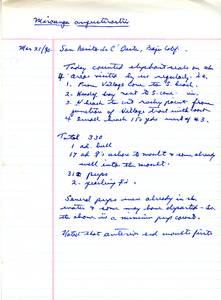 Mirounga angustirostris
Mar 25/80. San Benito Is C Baja Calif.
Today counted elephant seals on the
4 areas visited by us regularly. i.e.
1. From Village Cove to S. beach.
2. Rocky bay next to S. cove. in.
3. N beach to rocky point from
junction of Village trail with coast
4 Small beach 150 yds west of #3.
Total 330
1 ad. bull
17 ad ♀s ashore to moult & some already
well into the moult.
310 pups
2 yearling
Several pups were already in the
water & some may have departed - so
the above is a minimum pup count.
Noted that anterior end moults first